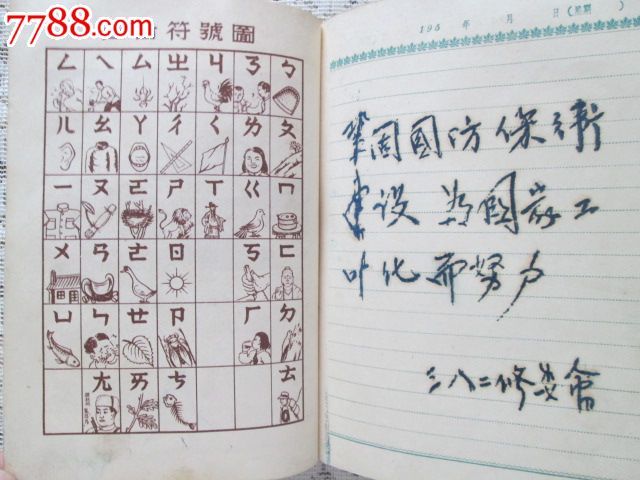 7788.com
符號圖
ㄥ ㄟ ㄙ ㄓ ㄐ ㄋ ㄅ
ㄦ ㄠ ㄚ ㄔ ㄑ ㄌ ㄆ
ㄧ ㄡ ㄛ ㄕ ㄒ ㄍ ㄇ
ㄨ ㄢ ㄜ ㄖ ㄎ ㄈ
ㄩ ㄣ ㄝ ㄗ ㄏ ㄉ
ㄤ ㄞ ㄘ ㄊ
195 年 月 日(星期 )
鞏固國防保衛
建设 为國家工
叶化而努力
三八二修委會